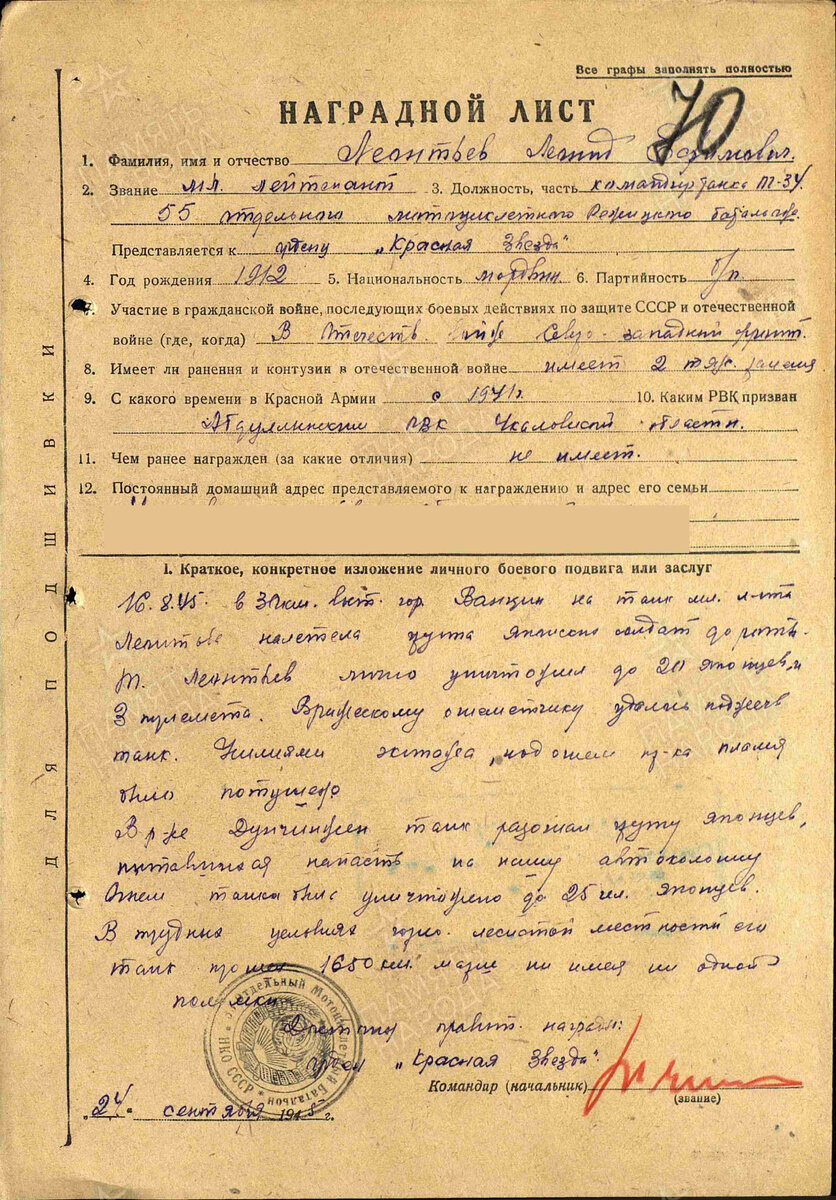 Все графы заполнять полностью
70
НАГРАДНОЙ ЛИСТ
1. Фамилия, имя и отчество Леонтьев Леонид Ефимович.
2. Звание мл. лейтенант 3. Должность, часть командир танка Т-34
55 отдельного мотоциклетного Режицкого батальона
Представляется к ордену „Красная Звезда"
4. Год рождения 1912 5. Национальность мордвин 6. Партийность б/п.
7. Участие в гражданской войне, последующих боевых действиях по защите СССР и отечественной
войне (где, когда) В Отечеств. войне Северо-западный фронт.
8. Имеет ли ранения и контузии в отечественной войне имеет 2 тяж. ранения
9. С какого времени в Красной Армии с 1941г. 10. Каким РВК призван
Абдулинским РВК Чкаловской области.
11. Чем ранее награжден (за какие отличия) не имеет.
12. Постоянный домашний адрес представляемого к награждению и адрес его семьи
I. Краткое, конкретное изложение личного боевого подвига или заслуг
16.8.45. в 30 км. вост. гор. Ванцин на танк мл. л-та
Леонтьева налетела группа японских солдат до роты.
Т. Леонтьев лично уничтожил до 20 японцев, и
3 пулемета. Вражескому огнеметчику удалось поджечь
танк. Усилиями экипажа, под огнем пр-ка пламя
было потушено
В р-не танк группу японцев,
пытавшихся напасть на нашу автоколонну
Огнем танка было уничтожено до 25 чел. японцев.
В трудных условиях горно-лесистой местности его
танк прошел 1650 км. марш не имея ни одной
поломки.
Достоин правит. награды:
орден „Красная Звезда".
Командир (начальник)
(звание)
„24" сентября 1945 г.
ДЛЯ ПОДШИВКИ
НКО СССР * 55 Отдельный Мотоциклетный Батальон *
ПАМЯТЬ НАРОДА